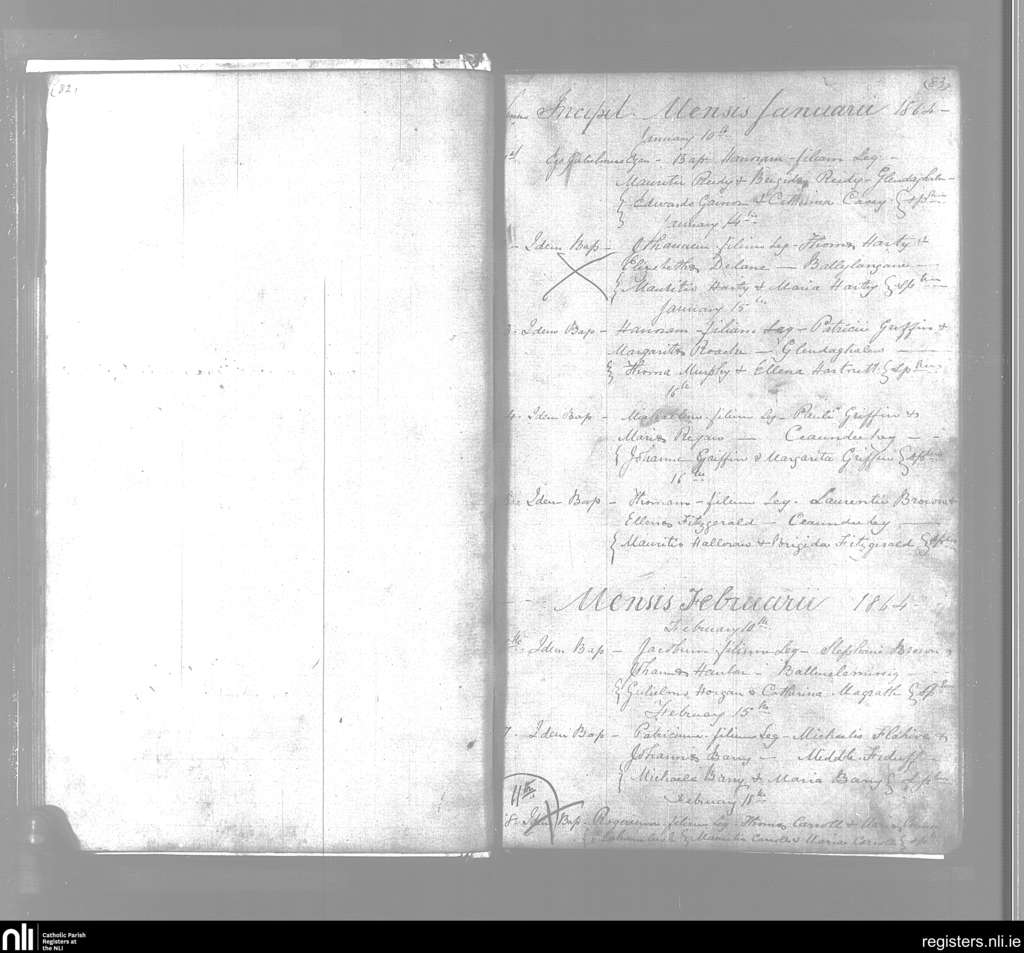 (82)
(83)
Incipit Mensis Januarii 1864 —
January 10th
Ego Gulielmus Egan — Bap. Hannam — filiam Leg —
Mauritii Reidy & Brigidae Reidy — Glendaghalen —
Edwardo Gainor & Catherina Casey } Spten
January 14th
Idem Bap — Johannem filium Leg — Thomae Harty &
Elizabetha Delane — Ballylangane —
Mauritio Harty & Maria Harty } spten
January 15th
Idem Bap — Hannam — filiam Leg — Patricii Griffin &
Margarita Roache — Glendaghalen —
Thoma Murphy & Ellena Hartnett } Spten
15th
4. Idem Bap — filium Leg — Pauli Griffin &
Maria Regan —
Johanne Griffin & Margarita Griffin } spten
16th
Idem Bap — Thomam — filium Leg — Laurentii Brown &
Ellena Fitzgerald —
Mauritio Halloran & Brigida Fitzgerald } spten
Mensis Februarii 1864
February 10th
Idem Bap — Jacobum filium Leg — Stephani Brown &
Johanna Hanlon —
Gulielmo Horgan & Catharina Magrath } spt
February 15th
7. Idem Bap — Patricium filium Leg — Michaelis Flahive &
Johanna Barry — Meddle
Michaele Barry & Maria Barry } spten
February 18th
11th
8. Idem Bap — filium Leg Thomae Carroll & Maria
nli
Catholic Parish
Registers at
the NLI
registers.nli.ie